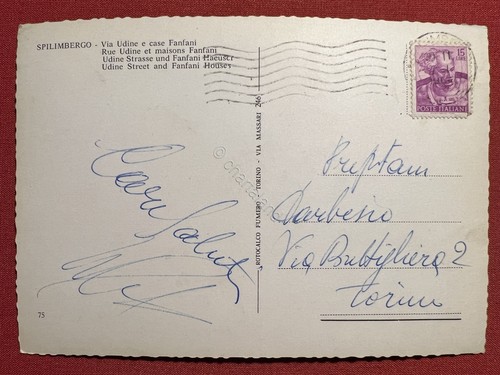 SPILIMBERGO - Via Udine e case Fanfani
Rue Udine et maisons Fanfani
Udine Strasse und Fanfani Haeuser
Udine Street and Fanfani Houses
15
POSTE ITALIANE
Cari Saluti
ROTOCALCO FUMERO - TORINO - VIA MASSARI 246
Darbesio
Via Buttigliera 2
Torino
75